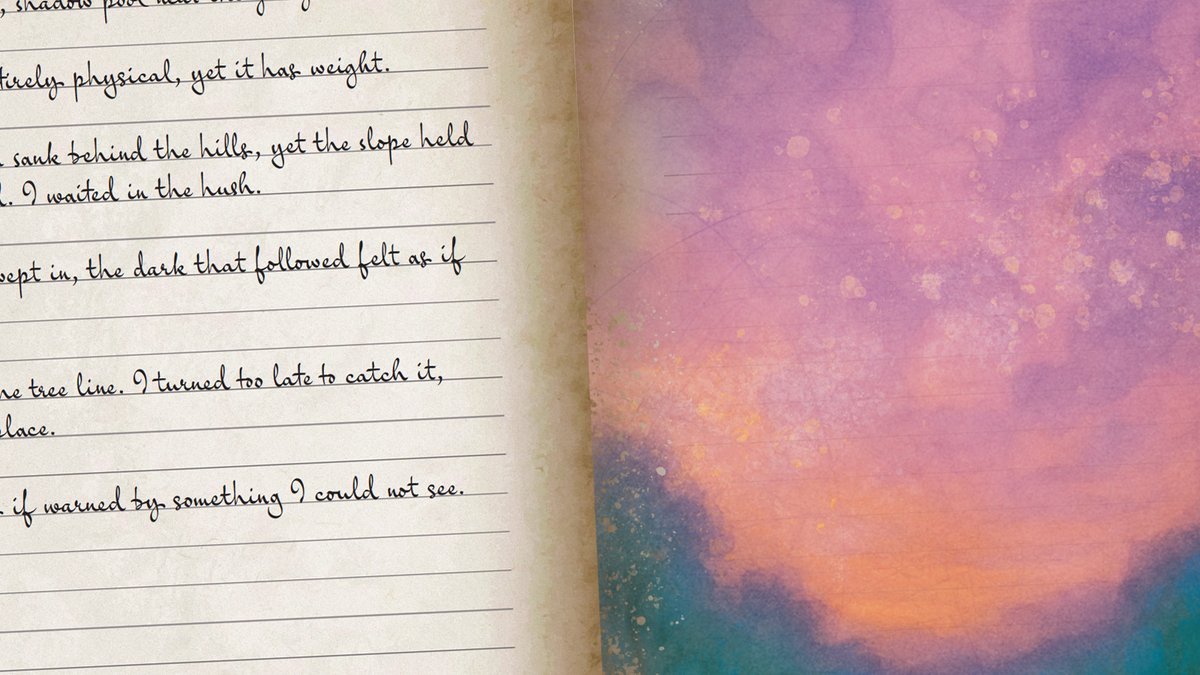 shadow pool
physical, yet it has weight.
sank behind the hills, yet the slope held
I waited in the hush.
in, the dark that followed felt as if
tree line. I turned too late to catch it,
if warned by something I could not see.